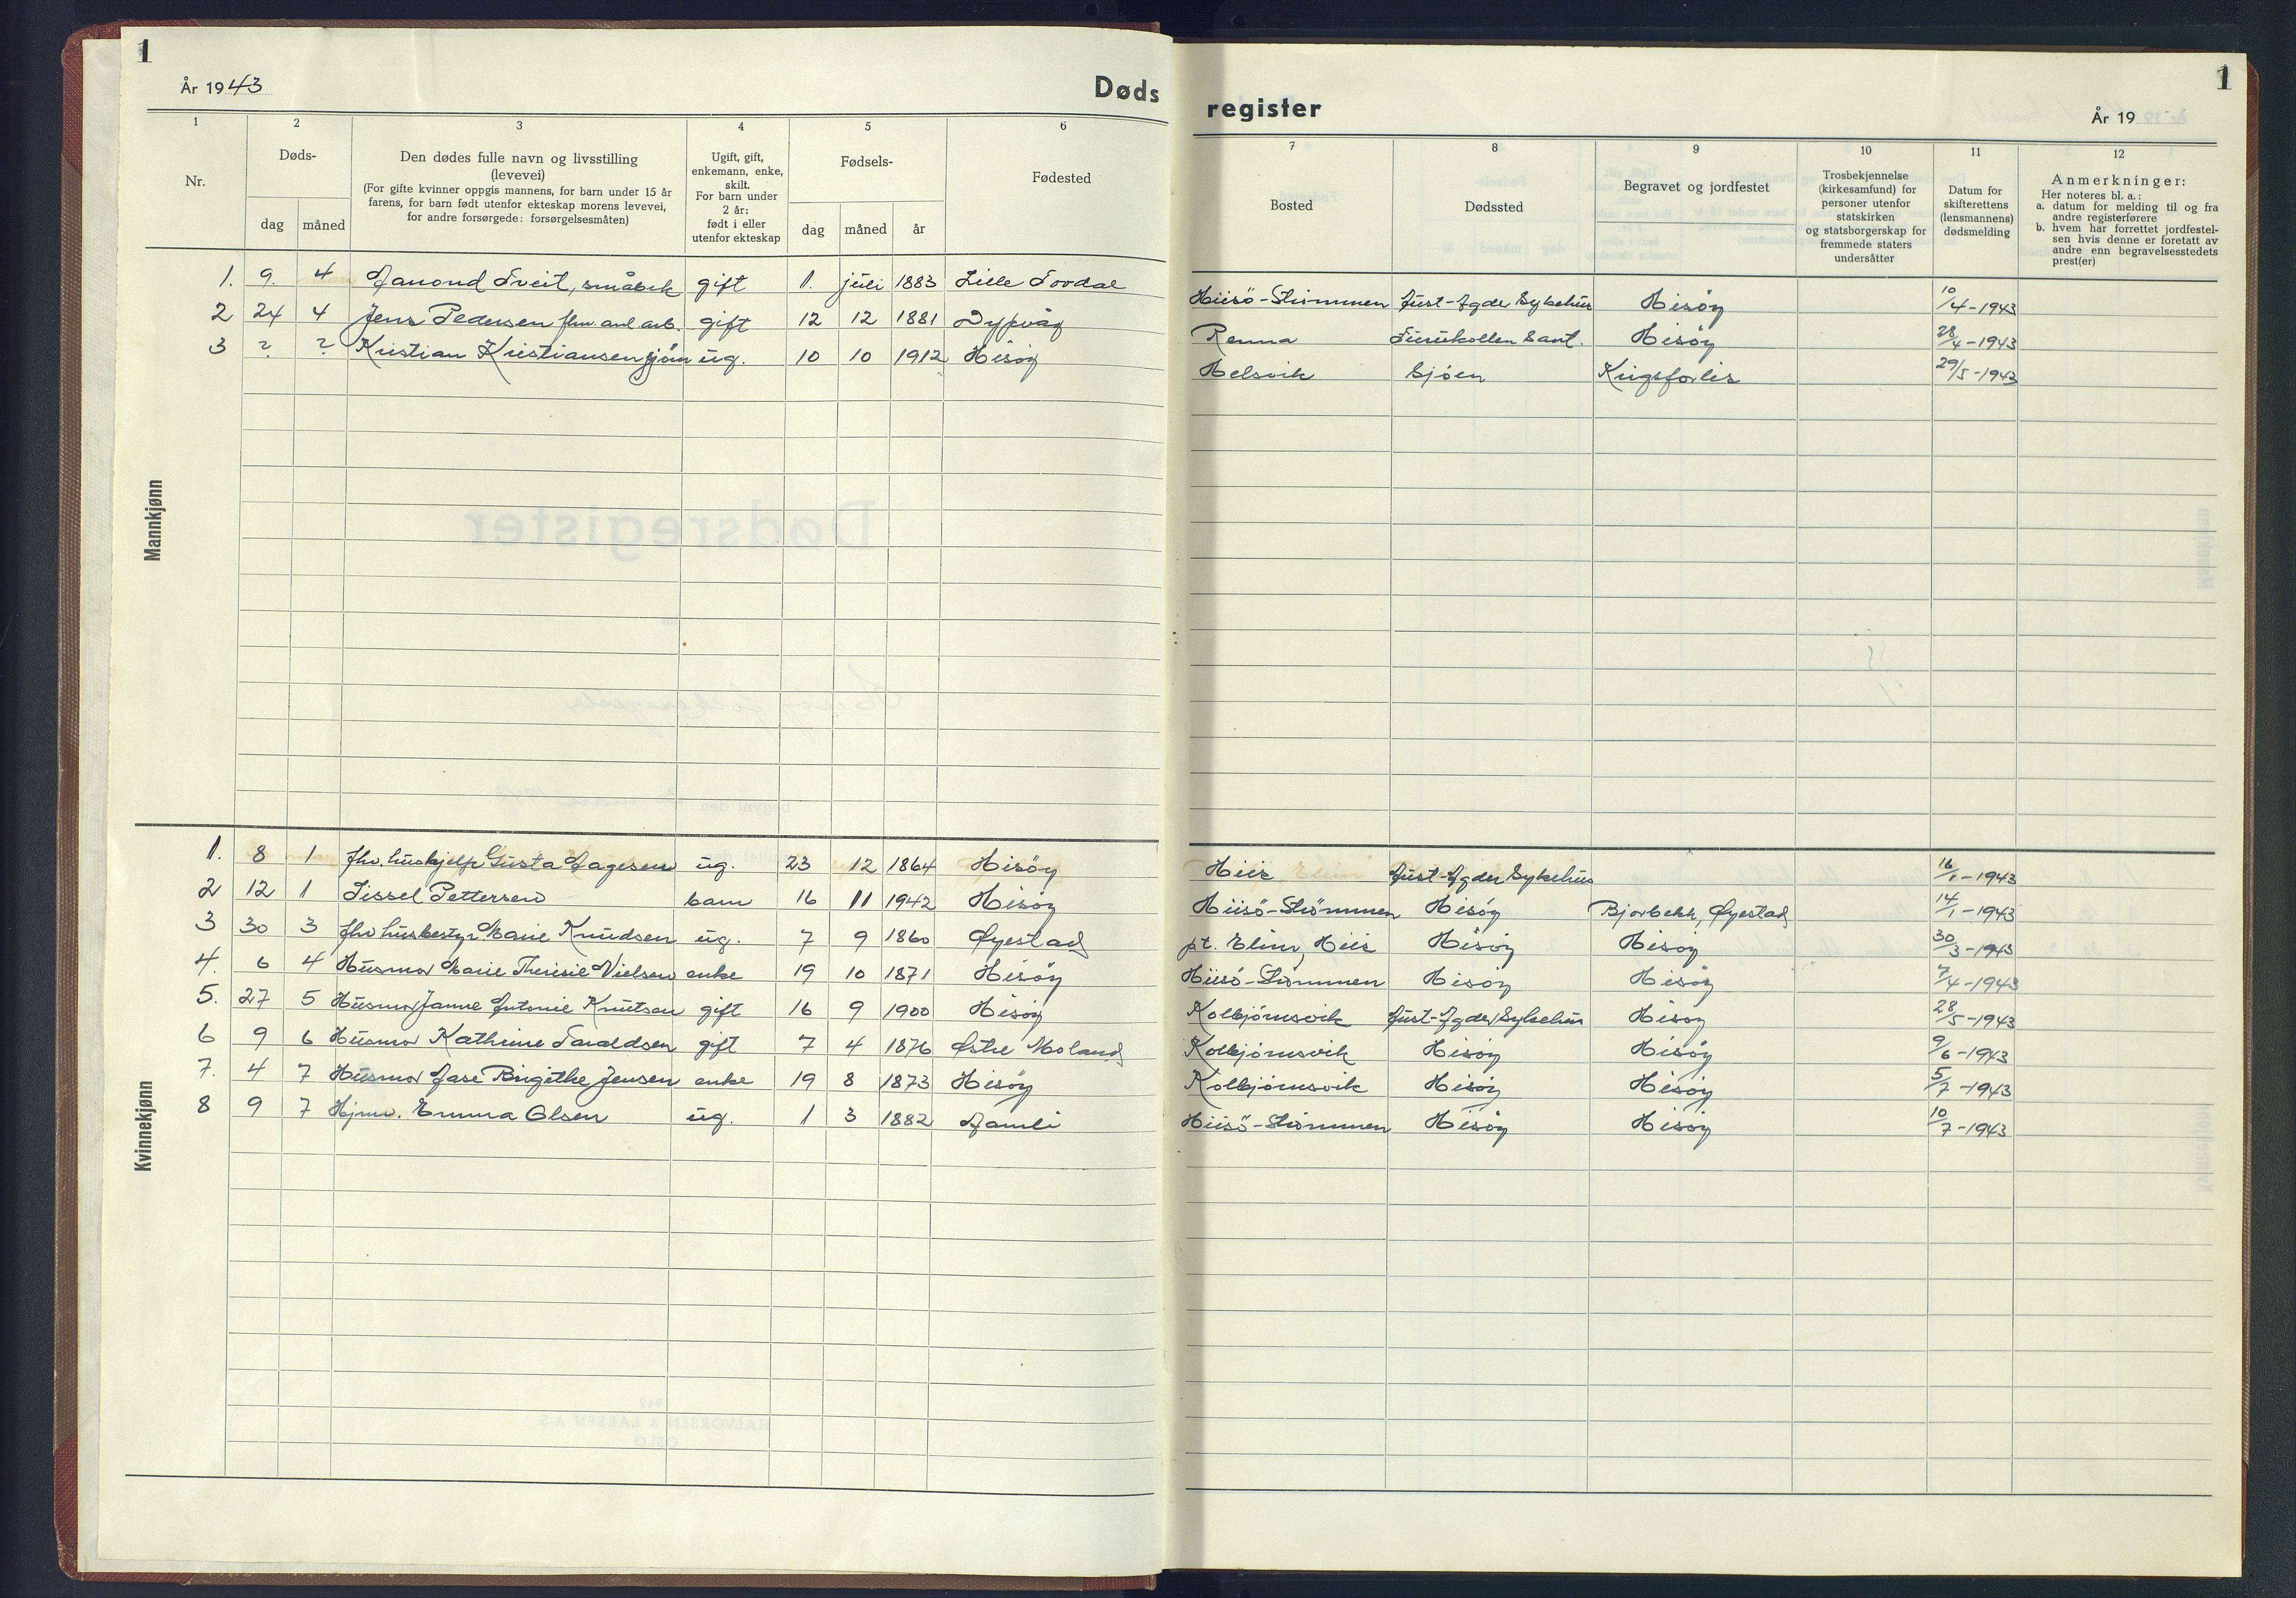 1
År 1943
Døds
register
1
År 19
1 2 3 4 5 6
Nr.
Døds-
dag måned
Den dødes fulle navn og livsstilling
(levevei)
(For gifte kvinner oppgis mannens, for barn under 15 år
farens, for barn født utenfor ekteskap morens levevei,
for andre forsørgede: forsørgelsesmåten)
Ugift, gift,
enkemann, enke,
skilt.
For barn under
2 år:
født i eller
utenfor ekteskap
Fødsels-
dag måned år
Fødested
7 8 9 10 11 12
Bosted
Dødssted
Begravet og jordfestet
Trosbekjennelse
(kirkesamfund) for
personer utenfor
statskirken
og statsborgerskap for
fremmede staters
undersåtter
Datum for
skifterettens
(lensmannens)
dødsmelding
Anmerkninger:
Her noteres bl. a.:
a. datum for melding til og fra
andre registerførere
b. hvem har forrettet jordfestel-
sen hvis denne er foretatt av
andre enn begravelsesstedets
prest(er)
Mannkjønn
1. 9. 4 Aanond Tveit, småbrk gift 1. juli 1883 Lille Tovdal Hiisö-Strömmen Aust-Agder Sykehus Hisöy 10/4-1943
2 24 4 Jens Pedersen fhv. anl. arb. gift 12 12 1881 Dypvåg Renna Furukollen Sant. Hisöy 28/4-1943
3 ? ? Kristian Kristiansen sjöm ug. 10 10 1912 Hisöy Helsvik Sjöen Krigsforlis 29/5-1943
Kvinnekjønn
1. 8 1 fhv. hushjelp Gusta Aagesen ug. 23 12 1864 Hisöy Hiis Aust-Agder Sykehus 16/1-1943
2 12 1 Sissel Pettersen barn 16 11 1942 Hisöy Hiisö-Strömmen Hisöy Bjorbekk, Øyestad 14/1-1943
3 30 3 fhv husbestyr Marie Knudsen ug. 7 9 1860 Øyestad p.t. Elim, Hiis Hisöy Hisöy 30/3-1943
4. 6 4 Husmor Marie Theresie Nielsen enke 19 10 1871 Hisöy Hiisö-Strömmen Hisöy Hisöy 7/4-1943
5. 27 5 Husmor Janne Antonie Knutsen gift 16 9 1900 Hisöy Kolbjörnsvik Aust-Agder Sykehus Hisöy 28/5-1943
6 9 6 Husmor Kathrine Taraldsen gift 7 4 1876 Østre Moland Kolbjörnsvik Hisöy Hisöy 9/6-1943
7. 4 7 Husmor Aase Birgithe Jensen enke 19 8 1873 Hisöy Kolbjörnsvik Hisöy Hisöy 5/7-1943
8 9 7 Hjmv. Emma Olsen ug. 1 3 1882 Aamli Hiisö-Strömmen Hisöy Hisöy 10/7-1943